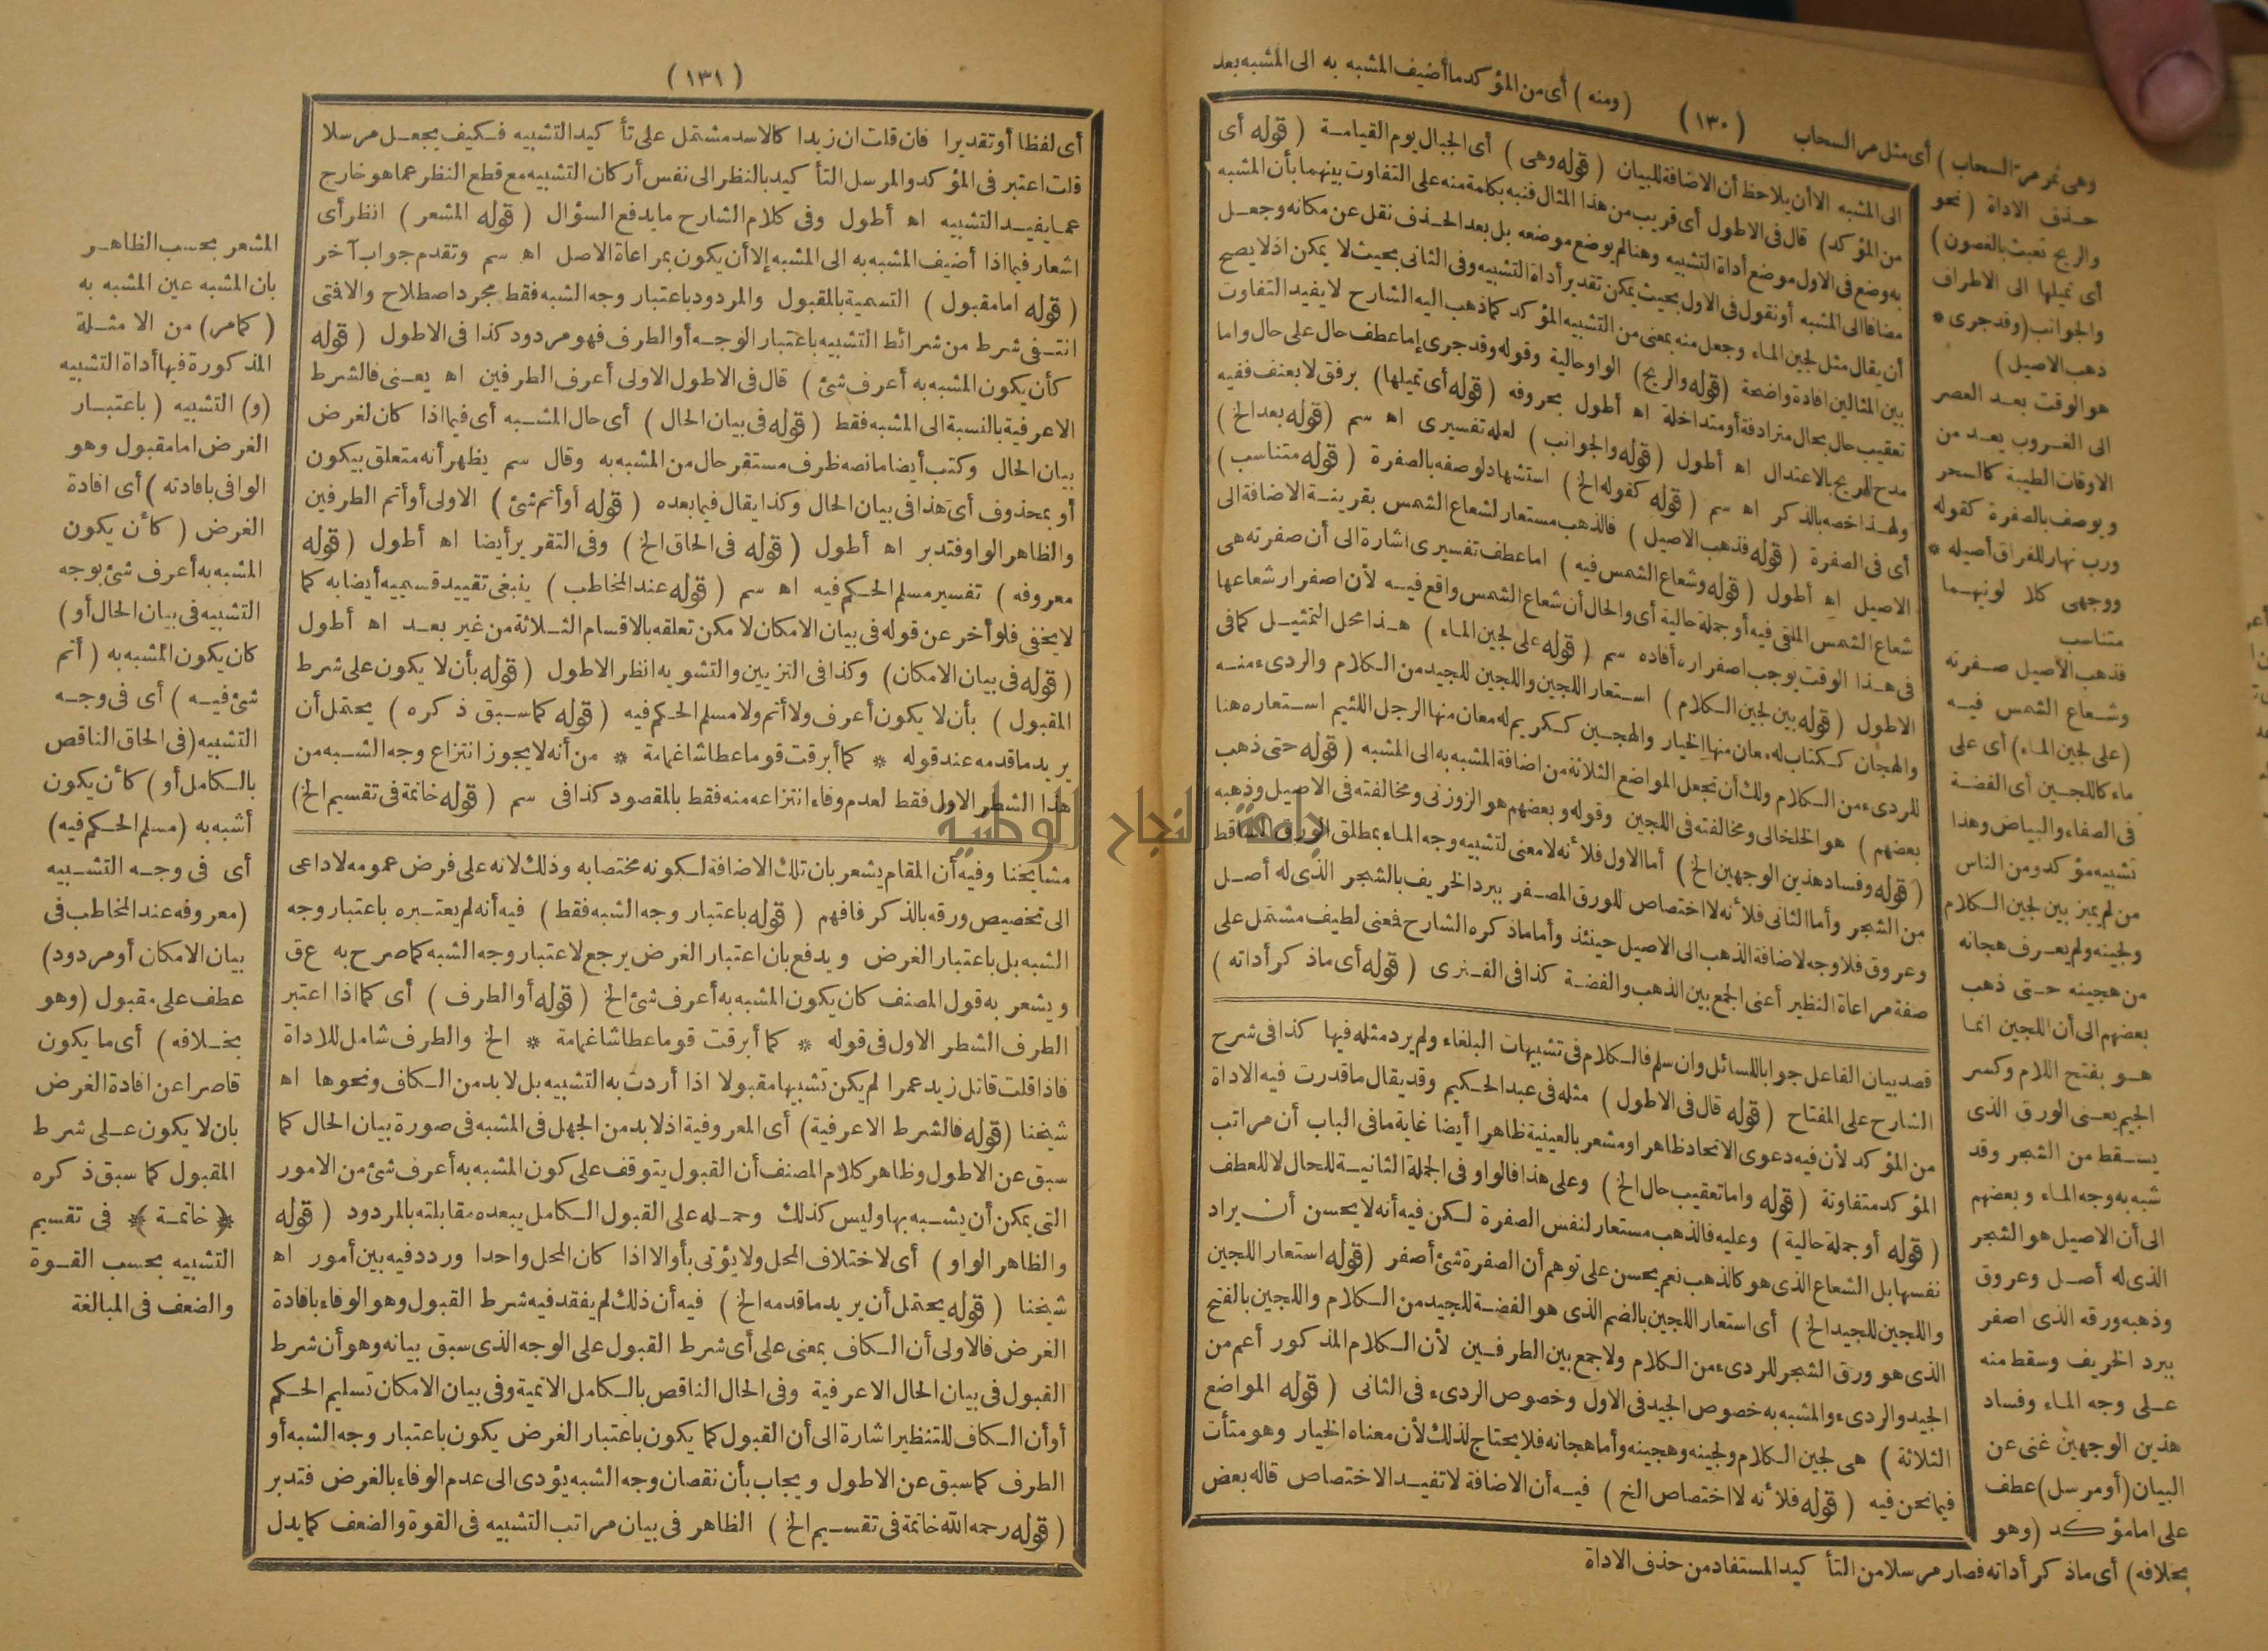 وهى تمر مرّ السحاب ) أى مثل مر السحاب (١٣٠) ( ومنه ) أى من المؤكد ما أضيف المشبه به الى المشبه بعد
حذف الاداة ( نحو
والريح تعبث بالغصون )
أى تميلها الى الاطراف
والجوانب ( وقد جرى *
ذهب الاصيل )
هو الوقت بعد العصر
الى الغروب يعد من
الاوقات الطيبة كالسحر
ويوصف بالصفرة كقوله
ورب نهار للفراق أصيله *
ووجهى كلا لونيهما
متناسب
فذهب الأصيل صفرته
وشعاع الشمس فيه
(على لجين الماء) أى على
ماء كاللجين أى الفضة
فى الصفاء والبياض وهذا
تشبيه مؤكد ومن الناس
من لم يميز بين لجين الكلام
ولجينه ولم يعرف هجانه
من هجينه حتى ذهب
بعضهم الى أن اللجين انما
هو بفتح اللام وكسر
الجيم يعنى الورق الذى
يسقط من الشجر وقد
شبه به وجه الماء وبعضهم
الى أن الاصيل هو الشجر
الذى له أصل وعروق
وذهبه ورقه الذى اصفر
ببرد الخريف وسقط منه
على وجه الماء وفساد
هذين الوجهين غنى عن
البيان (أو مرسل) عطف
على اما مؤكد (وهو
بخلافه) أى ما ذكر أداته فصار مرسلا من التأكيد المستفاد من حذف الاداة
الى المشبه الا أن يلاحظ أن الاضافة للبيان ( قوله وهى ) أى الجبال يوم القيامة ( قوله أى
من المؤكد) قال فى الاطول أى قريب من هذا المثال فنبه بكلمة منه على التفاوت بينهما بأن المشبه
به وضع فى الاول موضع أداة التشبيه وهنا لم يوضع موضعه بل بعد الحذف نقل عن مكانه وجعل
مضافا الى المشبه أو نقول فى الاول بحيث يمكن تقدير أداة التشبيه وفى الثانى بحيث لا يمكن اذ لا يصح
أن يقال مثل لجين الماء وجعل منه بمعنى من التشبيه المؤكد كما ذهب اليه الشارح لا يفيد التفاوت
بين المثالين افادة واضحة (قوله والريح) الواو حالية وقوله وقد جرى إما عطف حال على حال واما
تعقيب حال بحال مترادفة أو متداخلة اه أطول بحروفه ( قوله أى تميلها) برفق لا بعنف ففيه
مدح الريح بالاعتدال اه أطول ( قوله والجوانب ) لعله تفسيرى اه سم (قوله بعد الخ )
ولهذا خصه بالذكر اه سم ( قوله كقوله الخ ) استشهاد لوصفه بالصفرة ( قوله متناسب )
أى فى الصفرة ( قوله فذهب الاصيل ) فالذهب مستعار لشعاع الشمس بقرينة الاضافة الى
الاصيل اه أطول ( قوله وشعاع الشمس فيه ) اما عطف تفسيرى اشارة الى أن صفرته هى
شعاع الشمس الملقى فيه أو جملة حالية أى والحال أن شعاع الشمس واقع فيه لأن اصفرار شعاعها
فى هذا الوقت يوجب اصفراره أفاده سم ( قوله على لجين الماء ) هذا محل التمثيل كما فى
الاطول ( قوله بين لجين الكلام ) استعار اللجين واللجين للجيد من الكلام والردىء منه
والهجان ككتاب له معان منها الخيار والهجين ككريم له معان منها الرجل اللئيم استعاره هنا
للردىء من الكلام ولك أن تجعل المواضع الثلاثة من اضافة المشبه به الى المشبه ( قوله حتى ذهب
بعضهم ) هو الخلخالى ومخالفته فى اللجين وقوله وبعضهم هو الزوزنى ومخالفته فى الاصيل وذهبه
( قوله وفساد هذين الوجهين الخ ) أما الاول فلأنه لا معنى لتشبيه وجه الماء بمطلق الورق الساقط
من الشجر وأما الثانى فلأنه لا اختصاص للورق المصفر ببرد الخريف بالشجر الذى له أصل
وعروق فلا وجه لاضافة الذهب الى الاصيل حينئذ وأما ما ذكره الشارح فمعنى لطيف مشتمل على
صفة مراعاة النظير أعنى الجمع بين الذهب والفضة كذا فى الفنرى ( قوله أى ما ذكر أداته )
قصد بيان الفاعل جوابا للسائل وان سلم فالكلام فى تشبيهات البلغاء ولم يرد مثله فيها كذا فى شرح
الشارح على المفتاح ( قوله قال فى الاطول ) مثله فى عبد الحكيم وقد يقال ما قدرت فيه الاداة
من المؤكد لأن فيه دعوى الاتحاد ظاهرا ومشعر بالعينية ظاهرا أيضا غاية ما فى الباب أن مراتب
المؤكد متفاوتة ( قوله واما تعقيب حال الخ ) وعلى هذا فالواو فى الجملة الثانية للحال لا للعطف
( قوله أو جملة حالية ) وعليه فالذهب مستعار لنفس الصفرة لكن فيه أنه لا يحسن أن يراد
نفسها بل الشعاع الذى هو كالذهب نعم يحسن على توهم أن الصفرة شئ أصفر ( قوله استعار اللجين
واللجين للجيد الخ ) أى استعار اللجين بالضم الذى هو الفضة للجيد من الكلام واللجين بالفتح
الذى هو ورق الشجر للردىء من الكلام ولا جمع بين الطرفين لأن الكلام المذكور أعم من
الجيد والردىء والمشبه به خصوص الجيد فى الاول وخصوص الردىء فى الثانى ( قوله المواضع
الثلاثة ) هى لجين الكلام ولجينه وهجينه وأما هجانه فلا يحتاج لذلك لأن معناه الخيار وهو متأت
فيما نحن فيه ( قوله فلأنه لا اختصاص الخ ) فيه أن الاضافة لا تفيد الاختصاص قاله بعض
(١٣١)
أى لفظا أو تقديرا فان قلت ان زيدا كالاسد مشتمل على تأكيد التشبيه فكيف يجعل مرسلا
قلت اعتبر فى المؤكد والمرسل التأكيد بالنظر الى نفس أركان التشبيه مع قطع النظر عما هو خارج
عما يفيد التشبيه اه أطول وفى كلام الشارح ما يدفع السؤال ( قوله المشعر ) انظر أى
اشعار فيما اذا أضيف المشبه به الى المشبه إلا أن يكون بمراعاة الاصل اه سم وتقدم جواب آخر
( قوله اما مقبول ) التسمية بالمقبول والمردود باعتبار وجه الشبه فقط مجرد اصطلاح والا فمتى
انتفى شرط من شرائط التشبيه باعتبار الوجه أو الطرف فهو مردود كذا فى الاطول ( قوله
كأن يكون المشبه به أعرف شئ ) قال فى الاطول الاولى أعرف الطرفين اه يعنى فالشرط
الاعرفية بالنسبة الى المشبه فقط ( قوله فى بيان الحال ) أى حال المشبه أى فيما اذا كان لغرض
بيان الحال وكتب أيضا ما نصه ظرف مستقر حال من المشبه به وقال سم يظهر أنه متعلق بيكون
أو بمحذوف أى هذا فى بيان الحال وكذا يقال فيما بعده ( قوله أو أتم شئ ) الاولى أو أتم الطرفين
والظاهر الواو فتدبر اه أطول ( قوله فى الحاق الخ ) وفى التقرير أيضا اه أطول ( قوله
معروفه ) تفسير مسلم الحكم فيه اه سم ( قوله عند المخاطب ) ينبغى تقييد قسميه أيضا به كما
لا يخفى فلو أخر عن قوله فى بيان الامكان لا مكن تعلقه بالاقسام الثلاثة من غير بعد اه أطول
( قوله فى بيان الامكان) وكذا فى التزيين والتشويه انظر الاطول ( قوله بأن لا يكون على شرط
المقبول ) بأن لا يكون أعرف ولا أتم ولا مسلم الحكم فيه ( قوله كما سبق ذكره ) يحتمل أن
يريد ما قدمه عند قوله * كما أبرقت قوما عطاشا غمامة * من أنه لا يجوز انتزاع وجه الشبه من
هذا الشطر الاول فقط لعدم وفاء انتزاعه منه فقط بالمقصود كذا فى سم ( قوله خاتمة فى تقسيم الخ)
مشايخنا وفيه أن المقام يشعر بان تلك الاضافة لكونه مختصا به وذلك لانه على فرض عمومه لا داعى
الى تخصيص ورقه بالذكر فافهم ( قوله باعتبار وجه الشبه فقط ) فيه أنه لم يعتبره باعتبار وجه
الشبه بل باعتبار الغرض ويدفع بان اعتبار الغرض يرجع لاعتبار وجه الشبه كما صرح به ع ق
ويشعر به قول المصنف كان يكون المشبه به أعرف شئ الخ ( قوله أو الطرف ) أى كما اذا اعتبر
الطرف الشطر الاول فى قوله * كما أبرقت قوما عطاشا غمامة * الخ والطرف شامل للاداة
فاذا قلت قاتل زيد عمرا لم يكن تشبيها مقبولا اذا أردت به التشبيه بل لا بد من الكاف ونحوها اه
شيخنا (قوله فالشرط الاعرفية) أى المعروفية اذ لا بد من الجهل فى المشبه فى صورة بيان الحال كما
سبق عن الاطول وظاهر كلام المصنف أن القبول يتوقف على كون المشبه به أعرف شئ من الامور
التى يمكن أن يشبه بها وليس كذلك وحمله على القبول الكامل يبعده مقابلته بالمردود ( قوله
والظاهر الواو ) أى لاختلاف المحل ولا يؤتى بأو الا اذا كان المحل واحدا وردد فيه بين أمور اه
شيخنا ( قوله يحتمل أن يريد ما قدمه الخ ) فيه أن ذلك لم يفقد فيه شرط القبول وهو الوفاء بافادة
الغرض فالاولى أن الكاف بمعنى على أى شرط القبول على الوجه الذى سبق بيانه وهو أن شرط
القبول فى بيان الحال الاعرفية وفى الحال الناقص بالكامل الاتمية وفى بيان الامكان تسليم الحكم
أو أن الكاف للتنظير اشارة الى أن القبول كما يكون باعتبار الغرض يكون باعتبار وجه الشبه أو
الطرف كما سبق عن الاطول ويجاب بأن نقصان وجه الشبه يؤدى الى عدم الوفاء بالغرض فتدبر
( قوله رحمه الله خاتمة فى تقسيم الخ ) الظاهر فى بيان مراتب التشبيه فى القوة والضعف كما يدل
المشعر بحسب الظاهر
بان المشبه عين المشبه به
( كما مر) من الامثلة
المذكورة فيها أداة التشبيه
(و) التشبيه ( باعتبار
الغرض اما مقبول وهو
الوافى بافادته ) أى افادة
الغرض ( كأن يكون
المشبه به أعرف شئ بوجه
التشبيه فى بيان الحال أو )
كان يكون المشبه به ( أتم
شئ فيه ) أى فى وجه
التشبيه (فى الحاق الناقص
بالكامل أو ) كأن يكون
أشبه به (مسلم الحكم فيه)
أى فى وجه التشبيه
(معروفه عند المخاطب فى
بيان الامكان أو مردود)
عطف على مقبول (وهو
بخلافه ) أى ما يكون
قاصرا عن افادة الغرض
بان لا يكون على شرط
المقبول كما سبق ذكره
﴿ خاتمة ﴾ فى تقسيم
التشبيه بحسب القوة
والضعف فى المبالغة
جامعة النجاح الوطنية